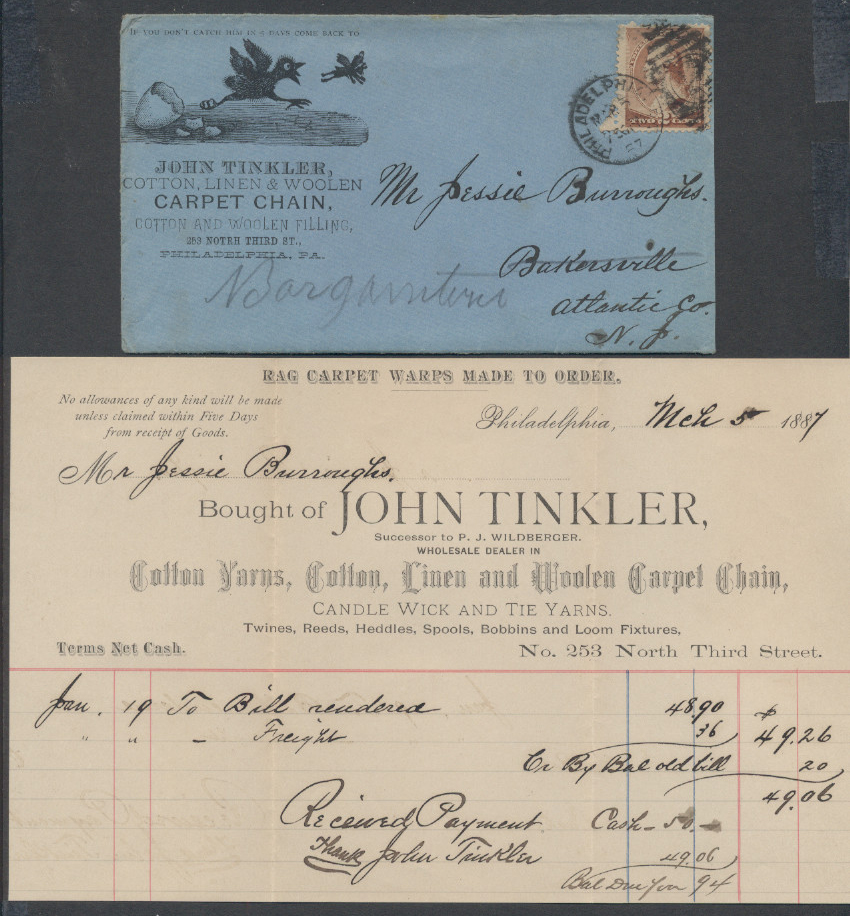 IF YOU DON'T CATCH HIM IN 5 DAYS COME BACK TO
JOHN TINKLER,
COTTON, LINEN & WOOLEN
CARPET CHAIN,
COTTON AND WOOLEN FILLING,
253 NOTRH THIRD ST.,
PHILADELPHIA, PA.
PHILADELPHIA
MAR
87
TWO CENTS
Mr Jessie Burroughs.
Bakersville
Atlantic Co.
N. J.
RAG CARPET WARPS MADE TO ORDER.
No allowances of any kind will be made
unless claimed within Five Days
from receipt of Goods.
Philadelphia, Mch 5 1887
Mr Jessie Burroughs.
Bought of JOHN TINKLER,
Successor to P. J. WILDBERGER.
WHOLESALE DEALER IN
Cotton Yarns, Cotton, Linen and Woolen Carpet Chain,
CANDLE WICK AND TIE YARNS.
Twines, Reeds, Heddles, Spools, Bobbins and Loom Fixtures,
Terms Net Cash.
No. 253 North Third Street.
Jan. 19 To Bill rendered 48.90 $
" " - Freight 36 49.26
Cr By Bal old bill 20
49.06
Received Payment Cash - 50.-
Thanks John Tinkler 49.06
Bal Due You 94